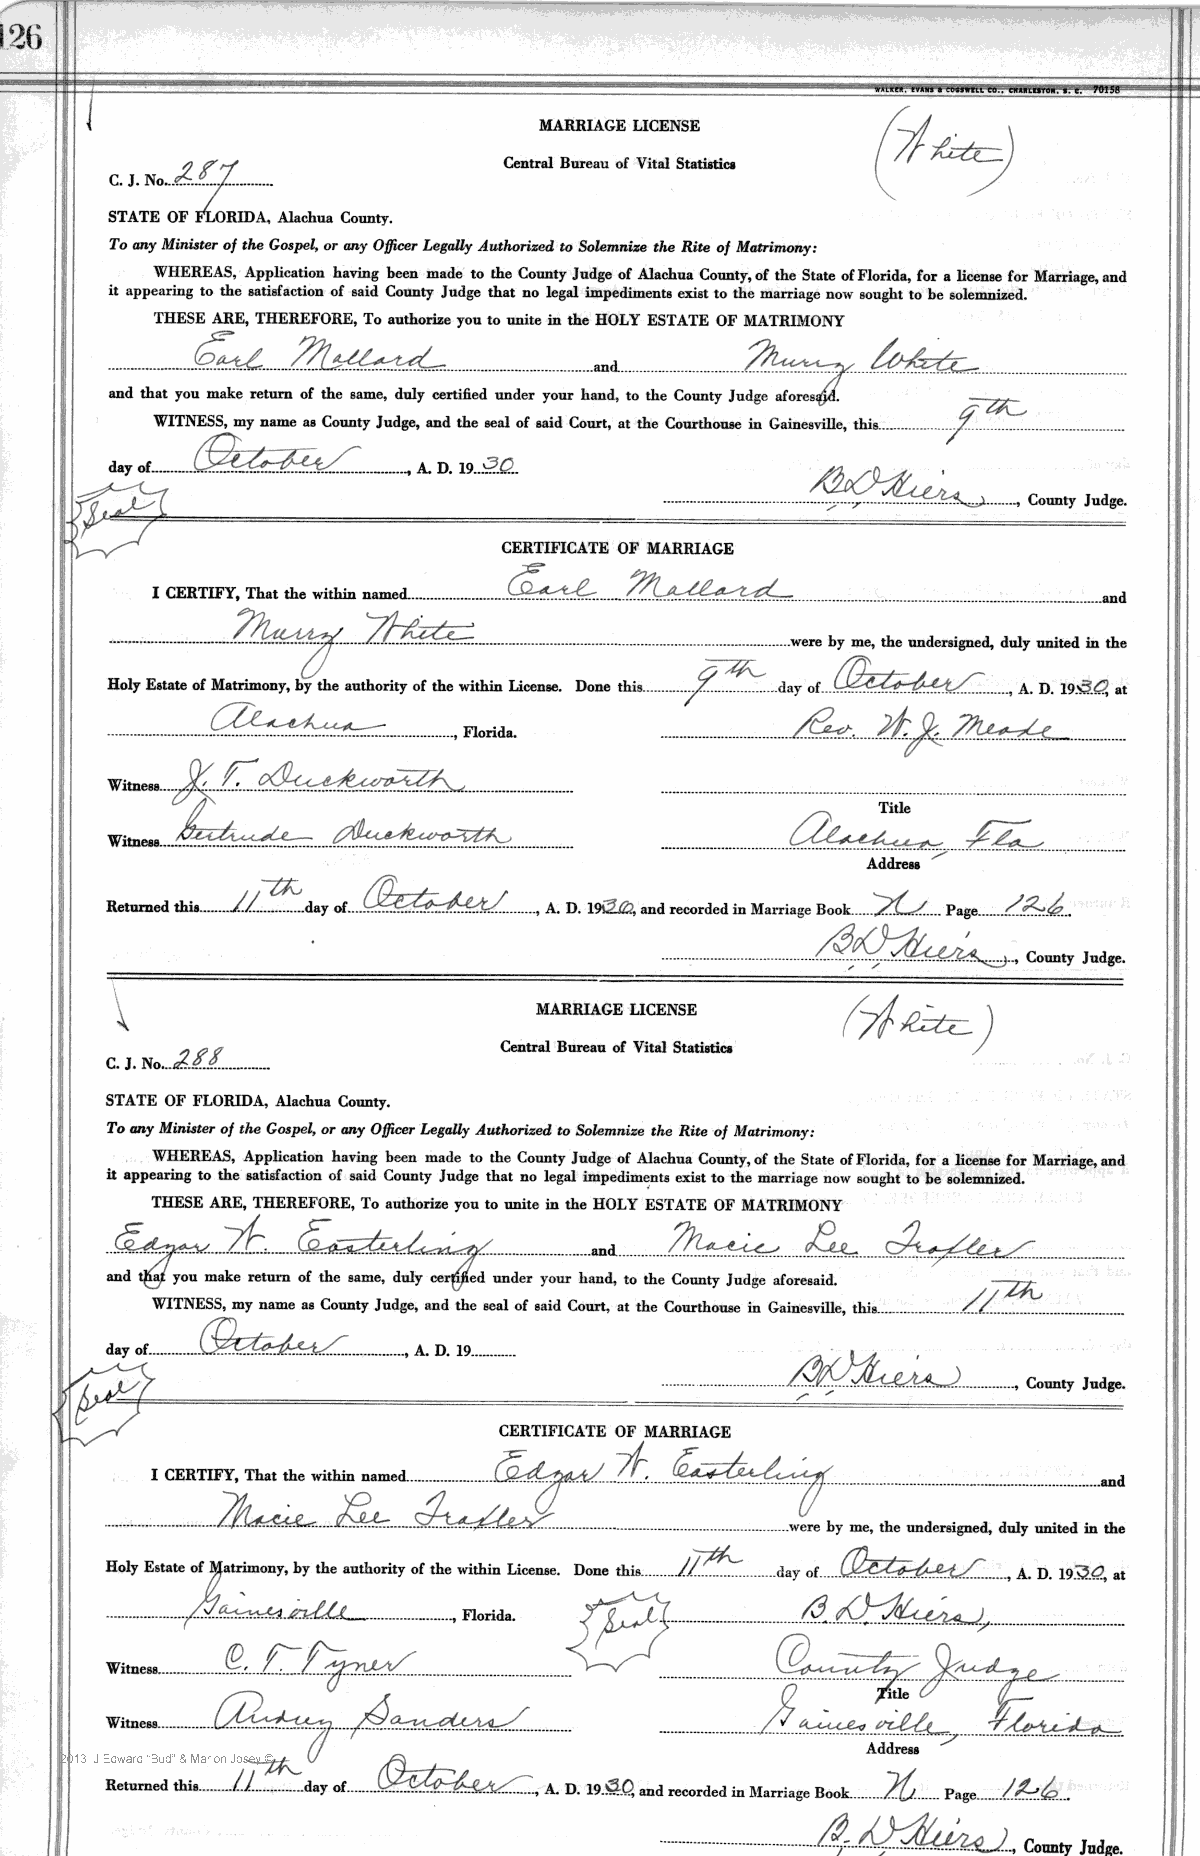 126
WALKER, EVANS & COGSWELL CO., CHARLESTON, S. C. 70158
MARRIAGE LICENSE
(White)
Central Bureau of Vital Statistics
C. J. No. 287
STATE OF FLORIDA, Alachua County.
To any Minister of the Gospel, or any Officer Legally Authorized to Solemnize the Rite of Matrimony:
WHEREAS, Application having been made to the County Judge of Alachua County, of the State of Florida, for a license for Marriage, and
it appearing to the satisfaction of said County Judge that no legal impediments exist to the marriage now sought to be solemnized.
THESE ARE, THEREFORE, To authorize you to unite in the HOLY ESTATE OF MATRIMONY
Earl Mallard and Murry White
and that you make return of the same, duly certified under your hand, to the County Judge aforesaid.
WITNESS, my name as County Judge, and the seal of said Court, at the Courthouse in Gainesville, this 9th
day of October, A. D. 19 30
B D Hiers, County Judge.
Seal
CERTIFICATE OF MARRIAGE
I CERTIFY, That the within named Earl Mallard and
Murry White were by me, the undersigned, duly united in the
Holy Estate of Matrimony, by the authority of the within License. Done this 9th day of October, A. D. 1930, at
Alachua, Florida. Rev. W. J. Meade
Witness J. T. Duckworth
Title
Witness Gertrude Duckworth Alachua, Fla
Address
Returned this 11th day of October, A. D. 1930, and recorded in Marriage Book N Page 126.
B D Hiers, County Judge.
MARRIAGE LICENSE
(White)
Central Bureau of Vital Statistics
C. J. No. 288
STATE OF FLORIDA, Alachua County.
To any Minister of the Gospel, or any Officer Legally Authorized to Solemnize the Rite of Matrimony:
WHEREAS, Application having been made to the County Judge of Alachua County, of the State of Florida, for a license for Marriage, and
it appearing to the satisfaction of said County Judge that no legal impediments exist to the marriage now sought to be solemnized.
THESE ARE, THEREFORE, To authorize you to unite in the HOLY ESTATE OF MATRIMONY
Edgar W. Easterling and Macie Lee Traxler
and that you make return of the same, duly certified under your hand, to the County Judge aforesaid.
WITNESS, my name as County Judge, and the seal of said Court, at the Courthouse in Gainesville, this 11th
day of October, A. D. 19
B D Hiers, County Judge.
Seal
CERTIFICATE OF MARRIAGE
I CERTIFY, That the within named Edgar W. Easterling and
Macie Lee Traxler were by me, the undersigned, duly united in the
Holy Estate of Matrimony, by the authority of the within License. Done this 11th day of October, A. D. 1930, at
Gainesville, Florida. Seal B. D. Hiers,
Witness C. T. Tyner County Judge
Title
Witness Audrey Sanders Gainesville, Florida
Address
2013 J Edward "Bud" & Marion Josey ©
Returned this 11th day of October, A. D. 1930, and recorded in Marriage Book N Page 126.
B. D Hiers, County Judge.